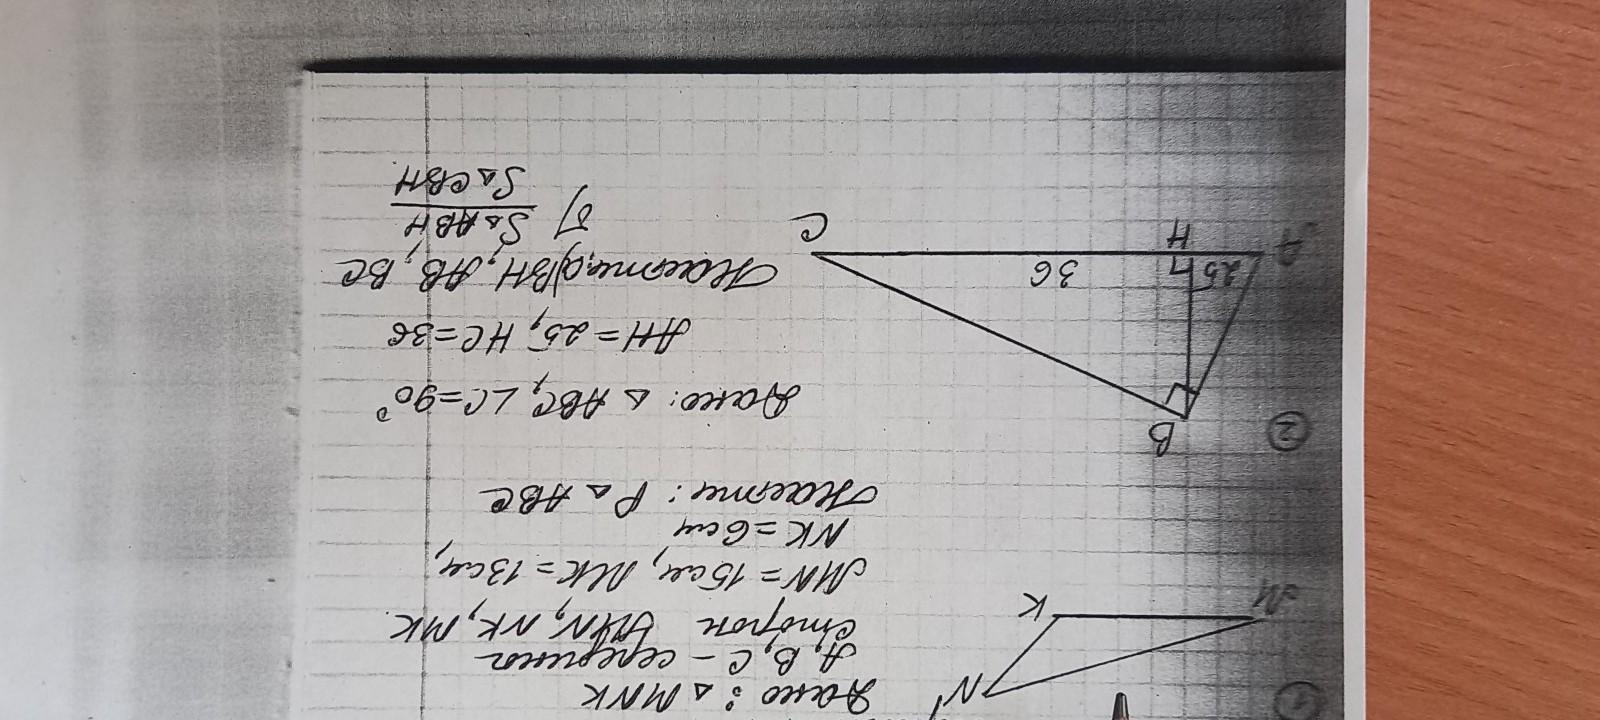 1
Дано: △ MNK
A, B, C – середины
сторон MN, NK, MK
MN = 15 см, MK = 13 см,
NK = 6 см
Найти: P △ ABC
N
M
K
2
Дано: △ ABC, ∠C=90°
AH = 25, HC = 36
Найти: а) BH, AB, BC
б) S△ABH
S△CBH
B
25
36
A
H
C